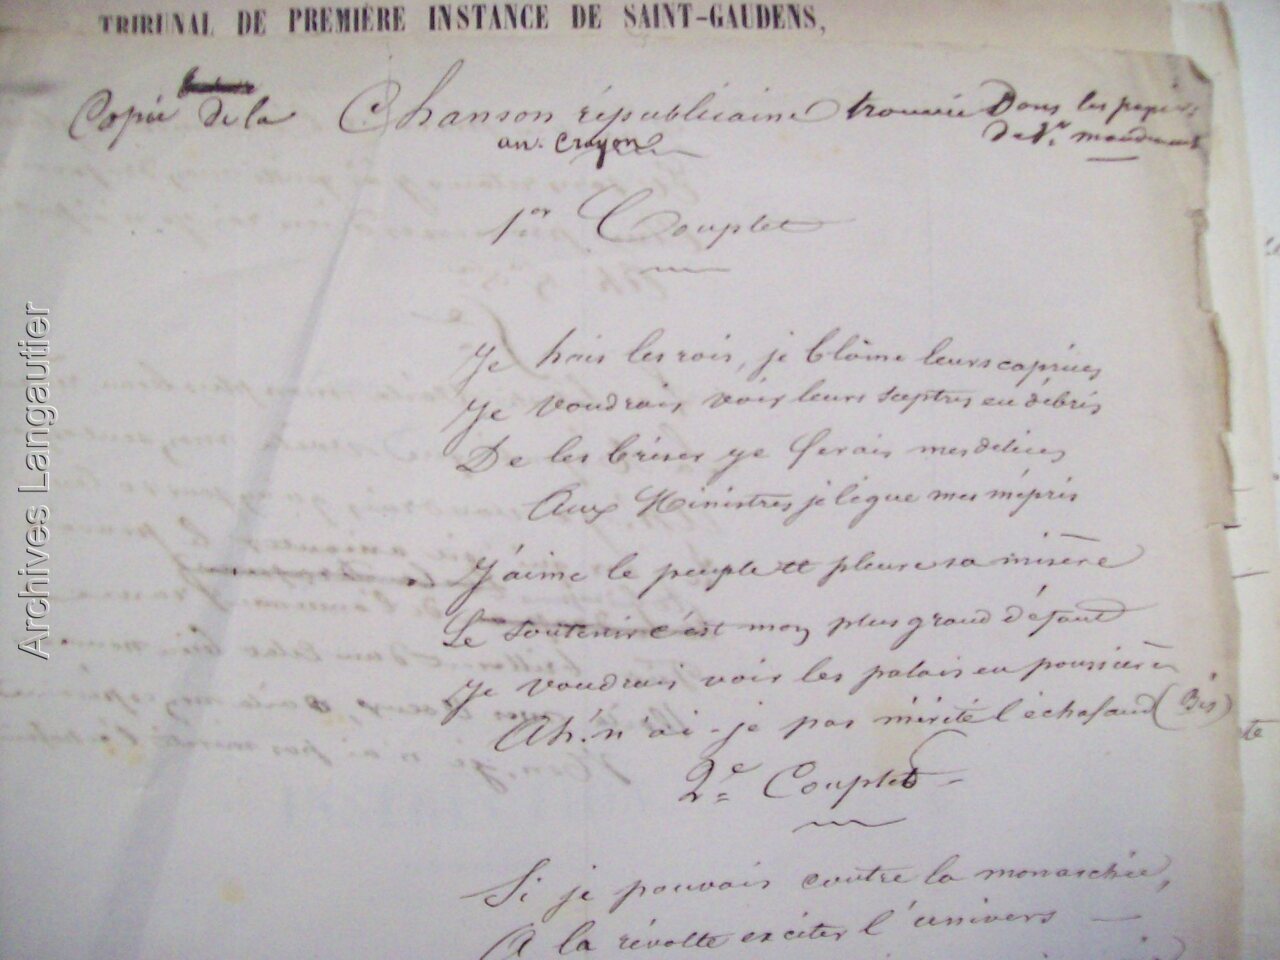 TRIBUNAL DE PREMIÈRE INSTANCE DE SAINT-GAUDENS,
Copie de la Chanson républicaine trouvée Dans les papiers
au crayon
1er Couplet
Je hais les rois, je blâme leurs caprices
Je voudrais voir leurs sceptres en débris
De les briser je ferais mes délices
Aux Ministres je lègue mes mépris
J'aime le peuple et pleure sa misère
Le soutenir c'est mon plus grand défaut
Je voudrais voir les palais en poussière
Ah! n'ai-je pas mérité l'échafaud (Bis)
2e Couplet
Si je pouvais contre la monarchie,
A la révolte exciter l'univers
Archives Langautier